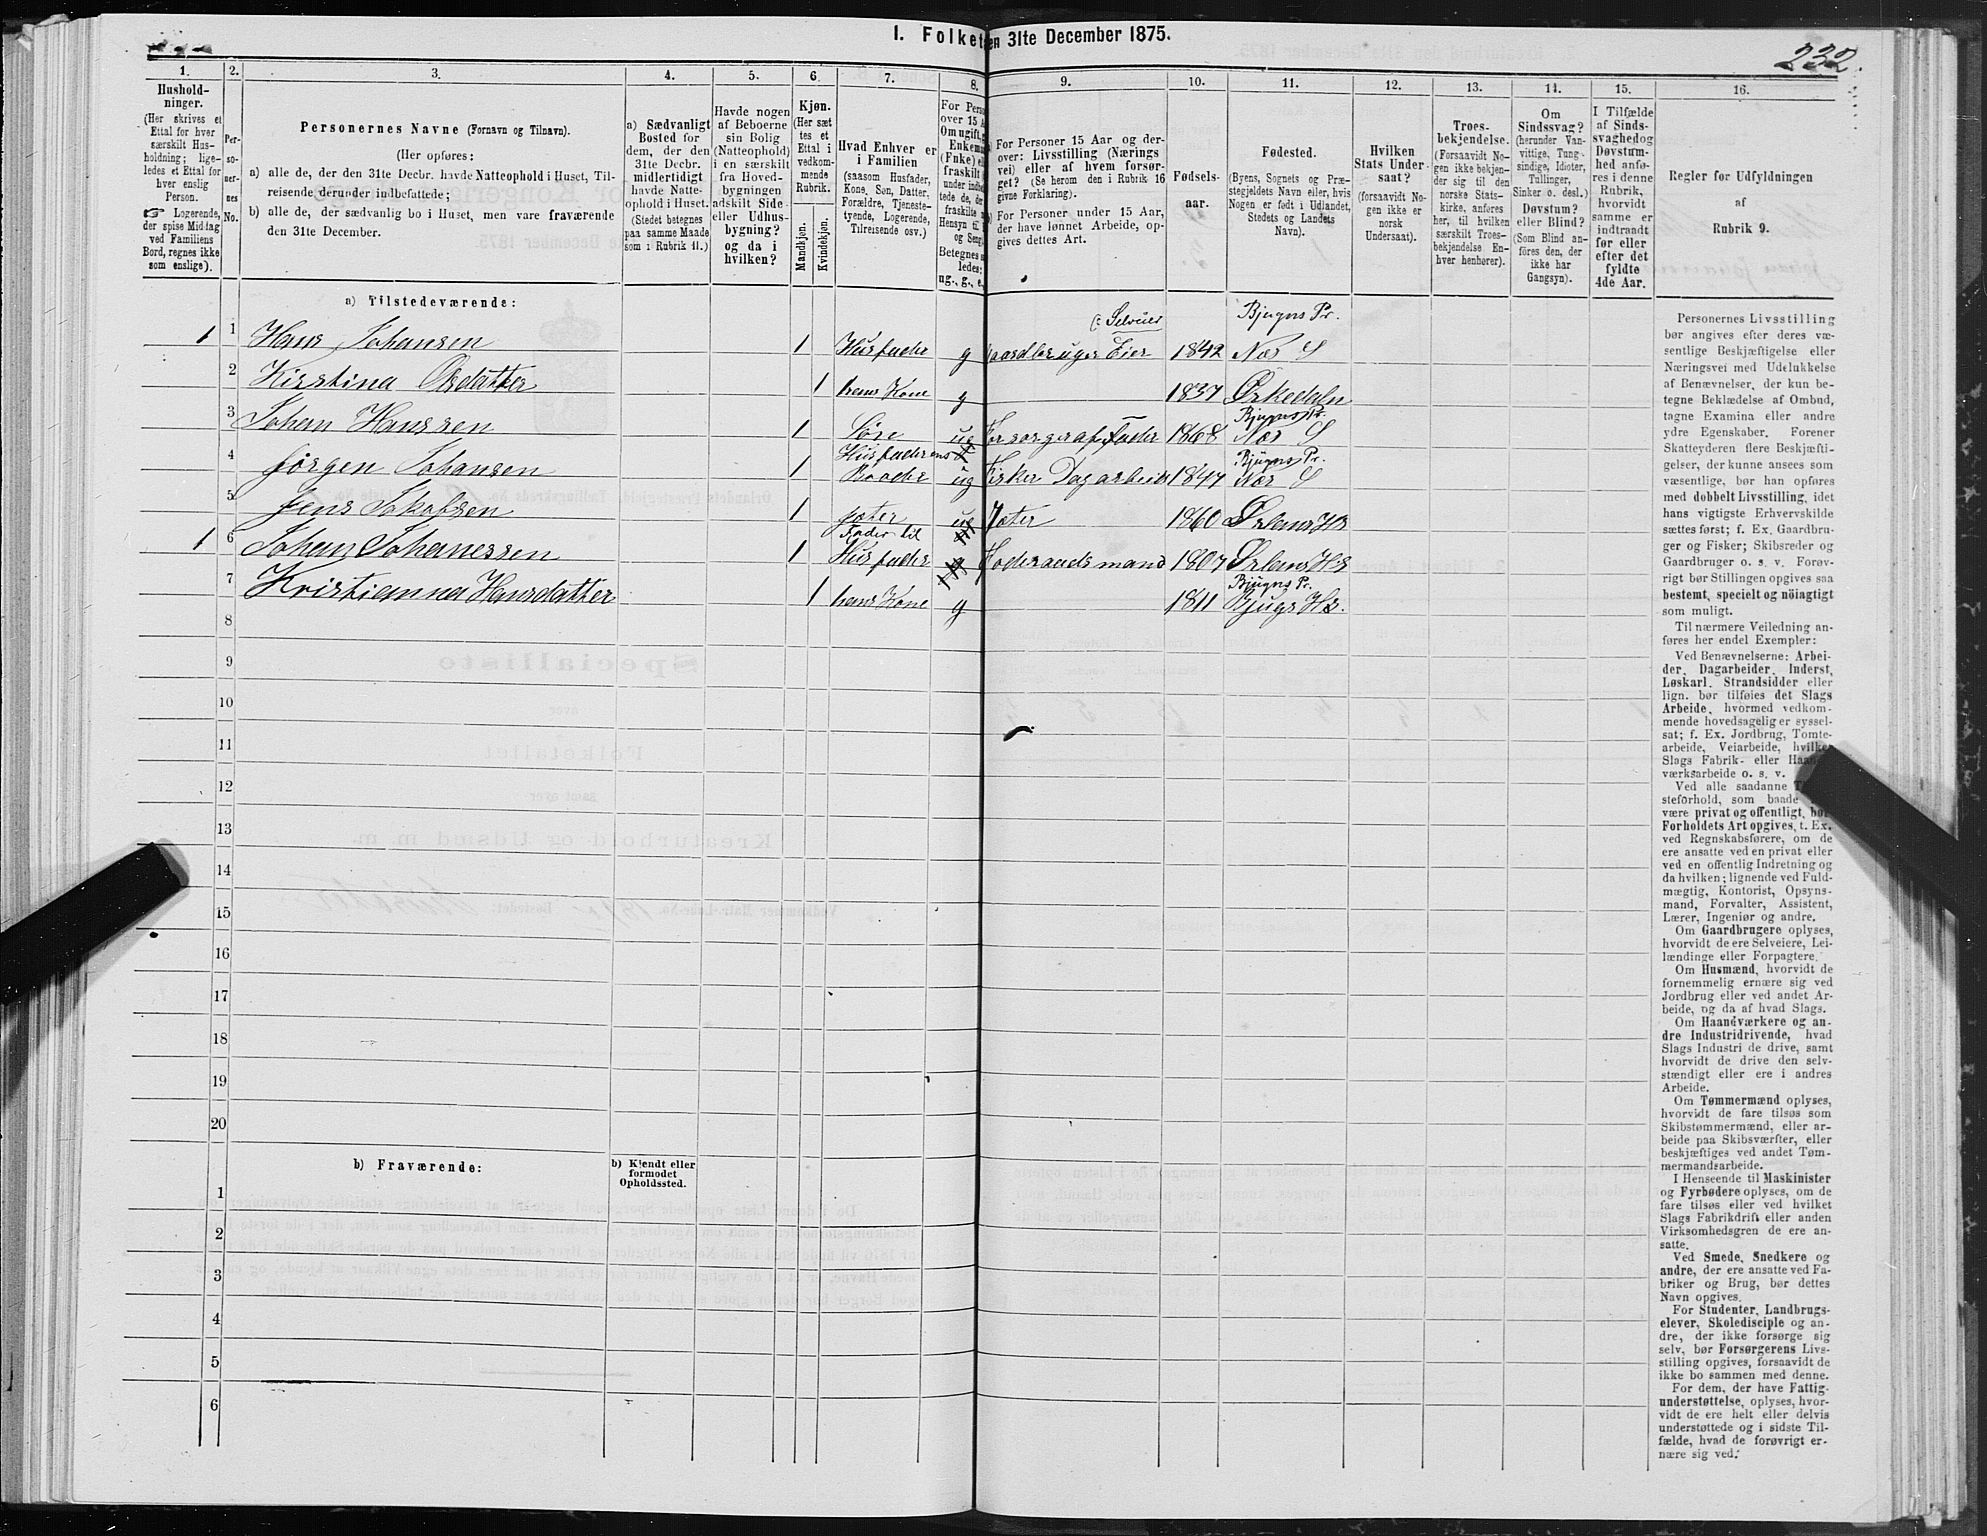 I. Folket en 31te December 1875.
232.
1. 2. 3. 4. 5. 6. 7. 8. 9. 10. 11. 12. 13. 14. 15. 16.
Hushold-
ninger.
(Her skrives et
Ettal for hver
særskilt Hus-
holdning; lige-
ledes et Ettal for
hver enslig
Person.
☞ Logerende,
der spise Middag
ved Familiens
Bord, regnes ikke
som enslige).
Per-
so-
ner-
nes
No.
Personernes Navne (Fornavn og Tilnavn).
(Her opføres:
a) alle de, der den 31te Decbr. havde Natteophold i Huset, Til-
reisende derunder indbefattede;
b) alle de, der sædvanlig bo i Huset, men vare fraværende
den 31te December.
a) Sædvanligt
Bosted for
dem, der den
31te Decbr.
midlertidigt
havde Natte-
ophold i Huset.
(Stedet betegnes
paa samme Maade
som i Rubrik 11.)
Havde nogen
af Beboerne
sin Bolig
(Natteophold)
i en særskilt
fra Hoved-
bygningen
adskilt Side-
eller Udhus-
bygning?
og da i
hvilken?
Kjøn.
(Her sæt
tes et
Ettal i
vedkom-
mende
Rubrik.
Mandkjøn.
Kvindekjøn.
Hvad Enhver er
i Familien
(saasom Husfader,
Kone, Søn, Datter,
Forældre, Tjeneste-
tyende, Logerende,
Tilreisende osv.)
For Pers
over 15 A
Om ugift,
Enkema
(Fnke) e
fraskilt
under indbe
tede de, de
fraskilte
Hensyn til
og Seng
Betegnes
ledes;
ug., g., e.
For Personer 15 Aar og der-
over: Livsstilling (Nærings
vei) eller af hvem forsør-
get? (Se herom den i Rubrik 16
givne Forklaring).
For Personer under 15 Aar,
der have lønnet Arbeide, op-
gives dettes Art.
Fødsels-
aar.
Fødested.
(Byens, Sognets og Præ-
stegjeldets Navn eller, hvis
Nogen er født i Udlandet,
Stedets og Landets
Navn).
Hvilken
Stats Under-
saat?
(forsaavidt No-
gen ikke er
norsk
Undersaat).
Troes-
bekjendelse.
(Forsaavidt No-
gen ikke bekjen-
der sig til den
norske Stats-
kirke, anføres
her, til hvilken
særskilt Troes-
bekjendelse En-
hver henhører).
Om
Sindssvag?
(herunder Van-
vittige, Tung-
sindige, Idioter,
Tullinger,
Sinker o. desl.)
Døvstum?
eller Blind?
(Som Blind an-
føres den, der
ikke har
Gangsyn).
I Tilfælde
af Sinds-
svaghed og
Døvstum-
hed anfø-
res i denne
Rubrik,
hvorvidt
samme er
indtraadt
før eller
efter det
fyldte
4de Aar.
Regler for Udfyldningen
af
Rubrik 9.
a) Tilstedeværende:
1 1 Hans Johansen 1 Husfader g Gaardbruger Eier (: Selveier 1842 Bjugns Pr. Næs S
2 Kirstina Olsdatter 1 hans Kone g 1837 Ørkedalen
3 Johan Hanssen 1 Søn ug Forsorges af Fader 1868 Bjugns Pr. Næs S
4 Jørgen Johansen 1 Husfaderens Broder ug Fisker Dagarbeid 1847 Bjugns Pr. Næs S
5 Jens Jakobsen 1 ug 1860
1 6 Johan Johanessen 1 Fader til Husfader g Foderaadsmand 1807
7 Kristianna Hansdatter 1 hans Kone g 1811 Bjugns Pr. Bjugn Hs.
8
9
10
11
12
13
14
15
16
17
18
19
20
b) Fraværende:
b) Kjendt eller
formodet
Opholdssted.
1
2
3
4
5
6
Personernes Livsstilling
bør angives efter deres væ-
sentlige Beskjæftigelse eller
Næringsvei med Udelukkelse
af Benævnelser, der kun be-
tegne Beklædelse af Ombud,
tagne Examina eller andre
ydre Egenskaber. Forener
Skatteyderen flere Beskjæfti-
gelser, der kunne ansees som
væsentlige, bør han opføres
med dobbelt Livsstilling, idet
hans vigtigste Erhvervskilde
sættes først; f. Ex. Gaardbru-
ger og Fisker; Skibsreder og
Gaardbruger o. s. v. Forøv-
rigt bør Stillingen opgives saa
bestemt, specielt og nöiagtigt
som muligt.
Til nærmere Veiledning an-
føres her endel Exempler:
Ved Benævnelserne: Arbei-
der, Dagarbeider, Inderst,
Løskarl, Strandsidder eller
lign. bør tilføies det Slags
Arbeide, hvormed vedkom-
mende hovedsagelig er syssel-
sat; f. Ex. Jordbrug, Tomte-
arbeide, Veiarbeide, hvilket
Slags Fabrik- eller Haand-
værksarbeide o. s. v.
Ved alle saadanne
steforhold, som baade
være privat og offentligt, bør
Forholdets Art opgives, t. Ex.
ved Regnskabsførere, om de
ere ansatte ved en privat eller
ved en offentlig Indretning og
da hvilken; lignende ved Fuld-
mægtig, Kontorist, Opsyns-
mand, Forvalter, Assistent,
Lærer, Ingeniør og andre.
Om Gaardbrugere oplyses,
hvorvidt de ere Selveiere, Lei-
lændinge eller Forpagtere.
Om Husmænd, hvorvidt de
fornemmelig ernære sig ved
Jordbrug eller ved andet Ar-
beide, og da af hvad Slags.
Om Haandværkere og an-
dre Industridrivende, hvad
Slags Industri de drive, samt
hvorvidt de drive den selv-
stændigt eller ere i andres
Arbeide.
Om Tømmermænd oplyses,
hvorvidt de fare tilsøs som
Skibstømmermænd, eller ar-
beide paa Skibsværfter, eller
beskjæftiges ved andet Tøm-
mermandsarbeide.
I Henseende til Maskinister
og Fyrbødere oplyses, om de
fare tilsøs eller ved hvilket
Slags Fabrikdrift eller anden
Virksomhedsgren de ere an-
satte.
Ved Smede, Snedkere og
andre, der ere ansatte ved Fa-
briker og Brug, bør dettes
Navn opgives.
For Studenter, Landbrugs-
elever, Skoledisciple og an-
dre, der ikke forsørge sig
selv, bør Forsørgerens Livs-
stilling opgives, forsaavidt de
ikke bo sammen med denne.
For dem, der have Fattig-
understøttelse, oplyses, hvor-
vidt de ere helt eller delvis
understøttede og i sidste Til-
fælde, hvad de forøvrigt er-
nære sig ved.